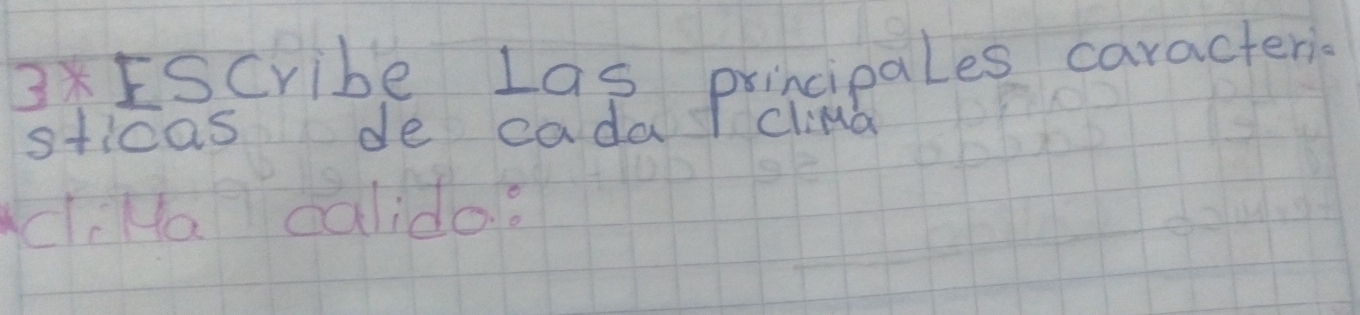 3* EScribe Las principales caracteri-
sticas de cada clima
*cliMa calido: